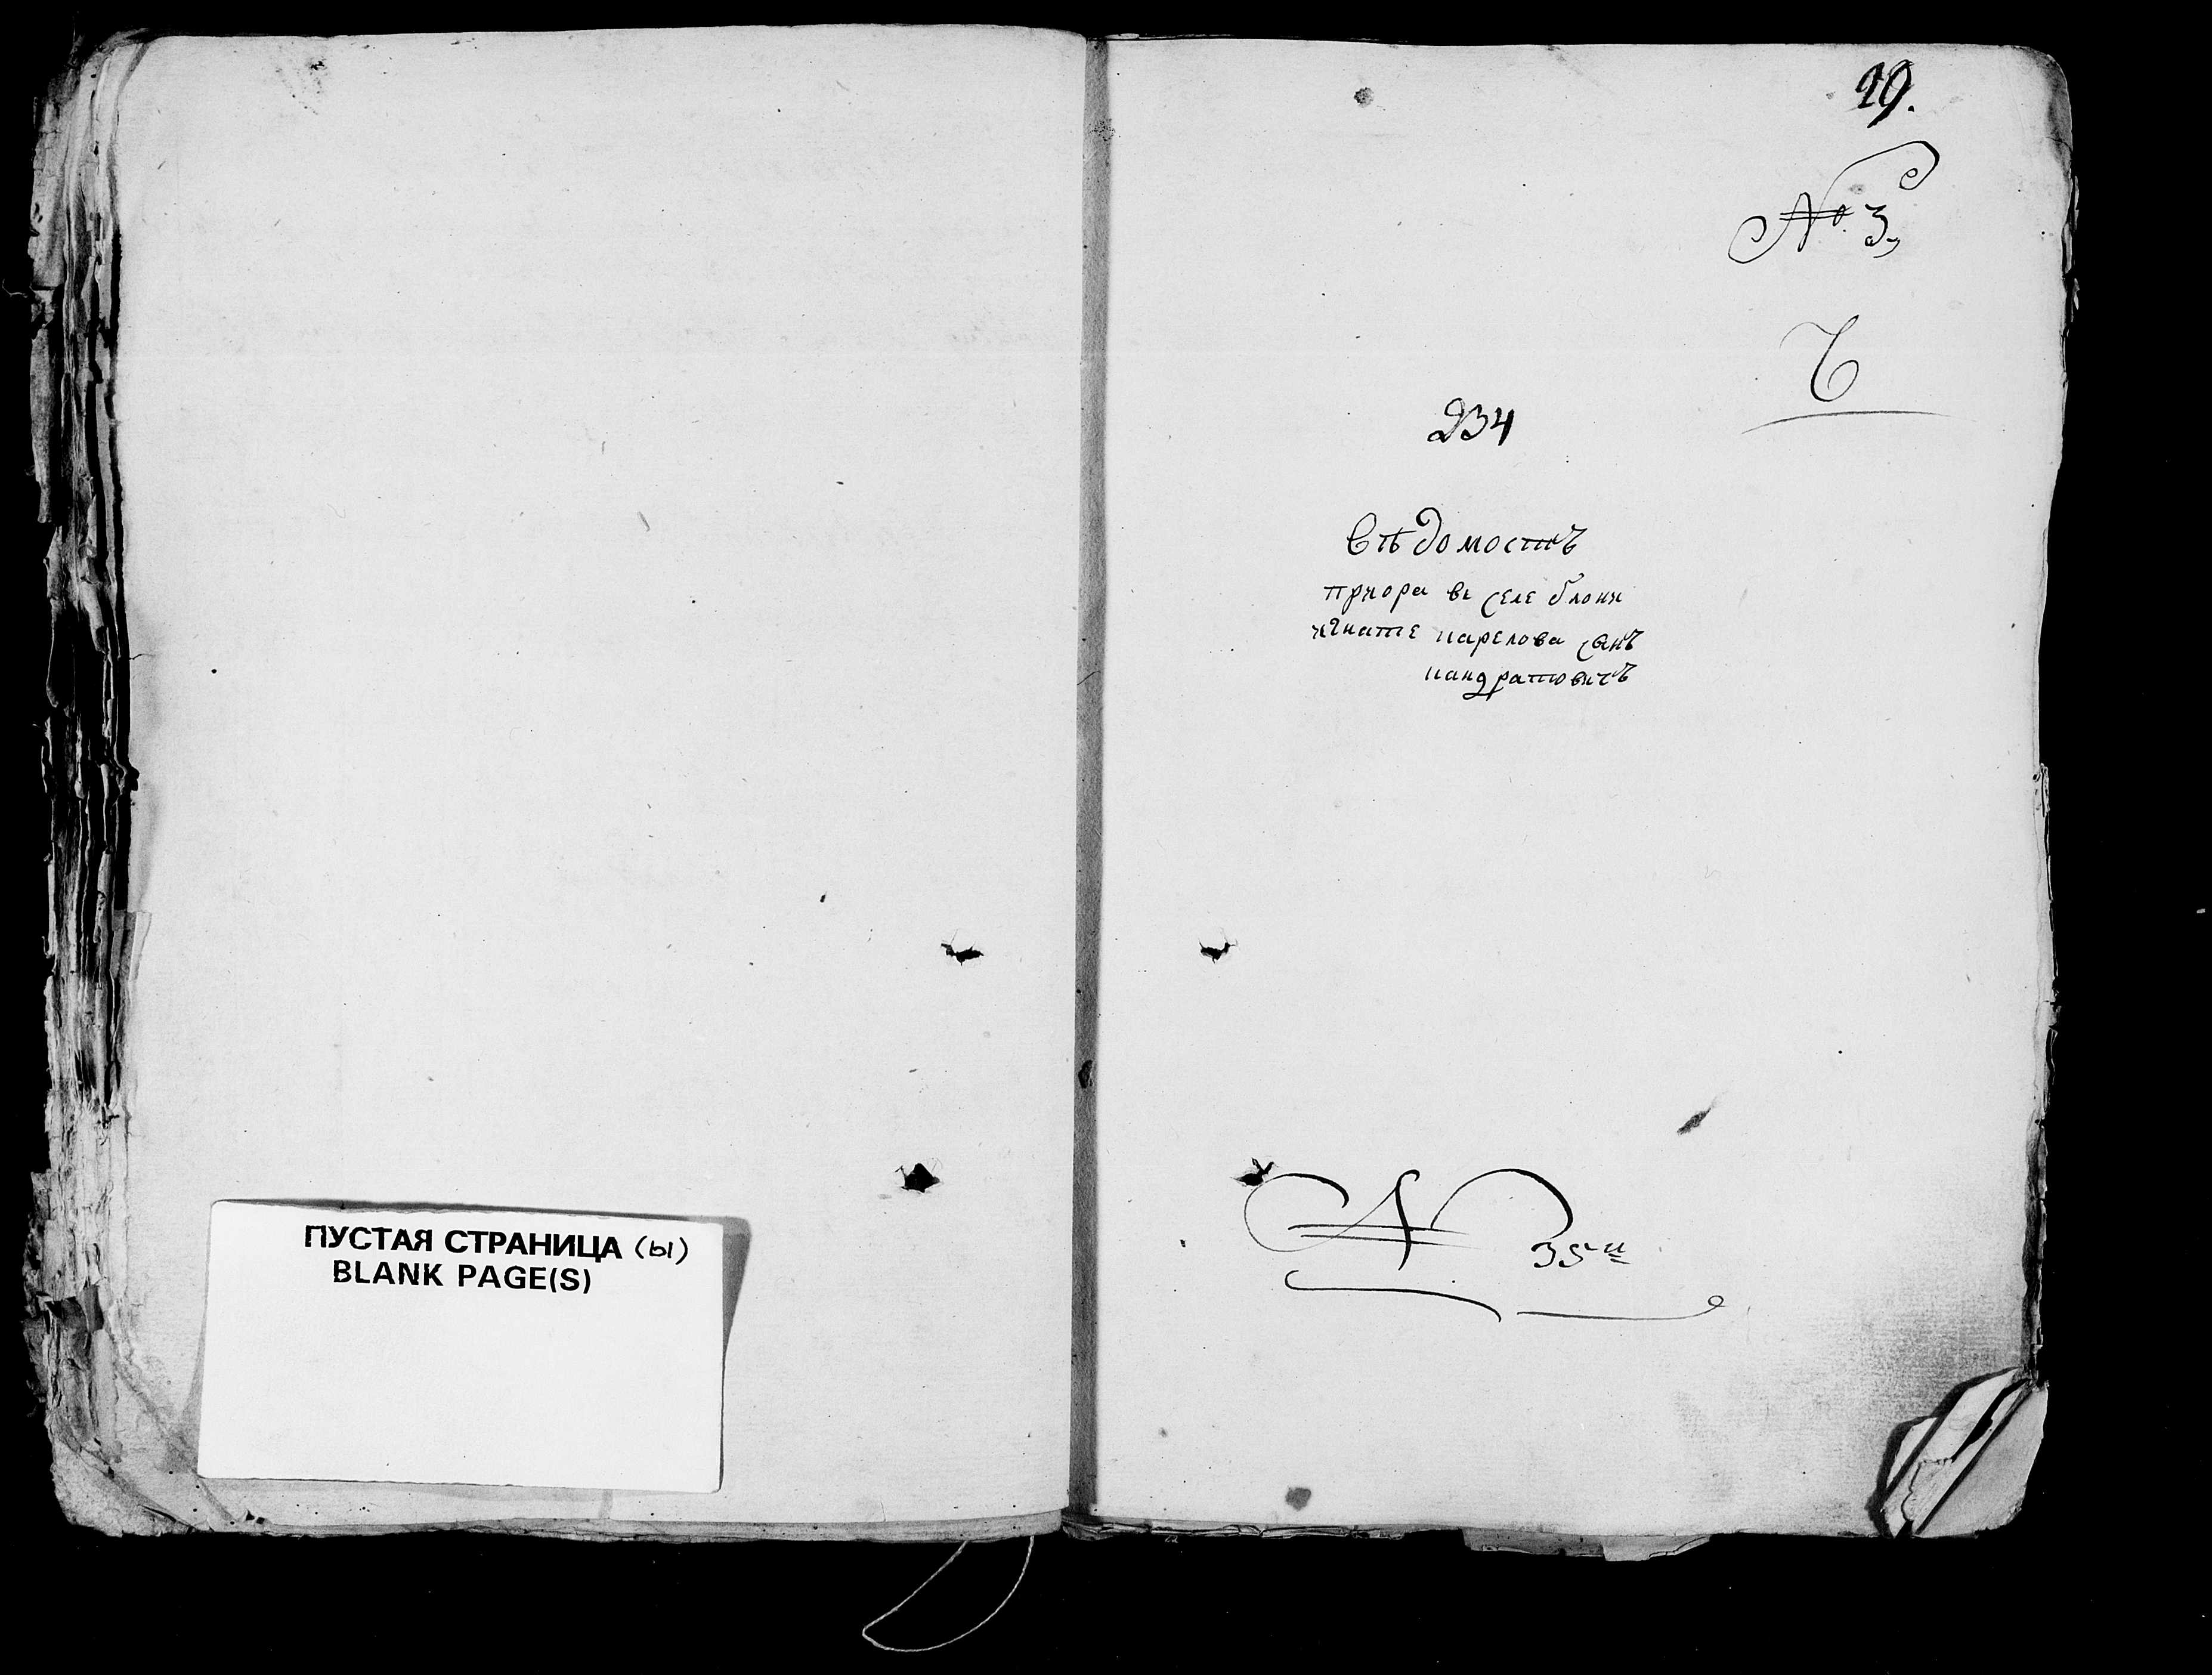 ПУСТАЯ СТРАНИЦА (ы)
BLANK PAGE(S)
29.
№ 3,
234
Вѣдомостъ
приора ве селе блони
игнате карелова сынъ
кандратовичъ
№ 35й